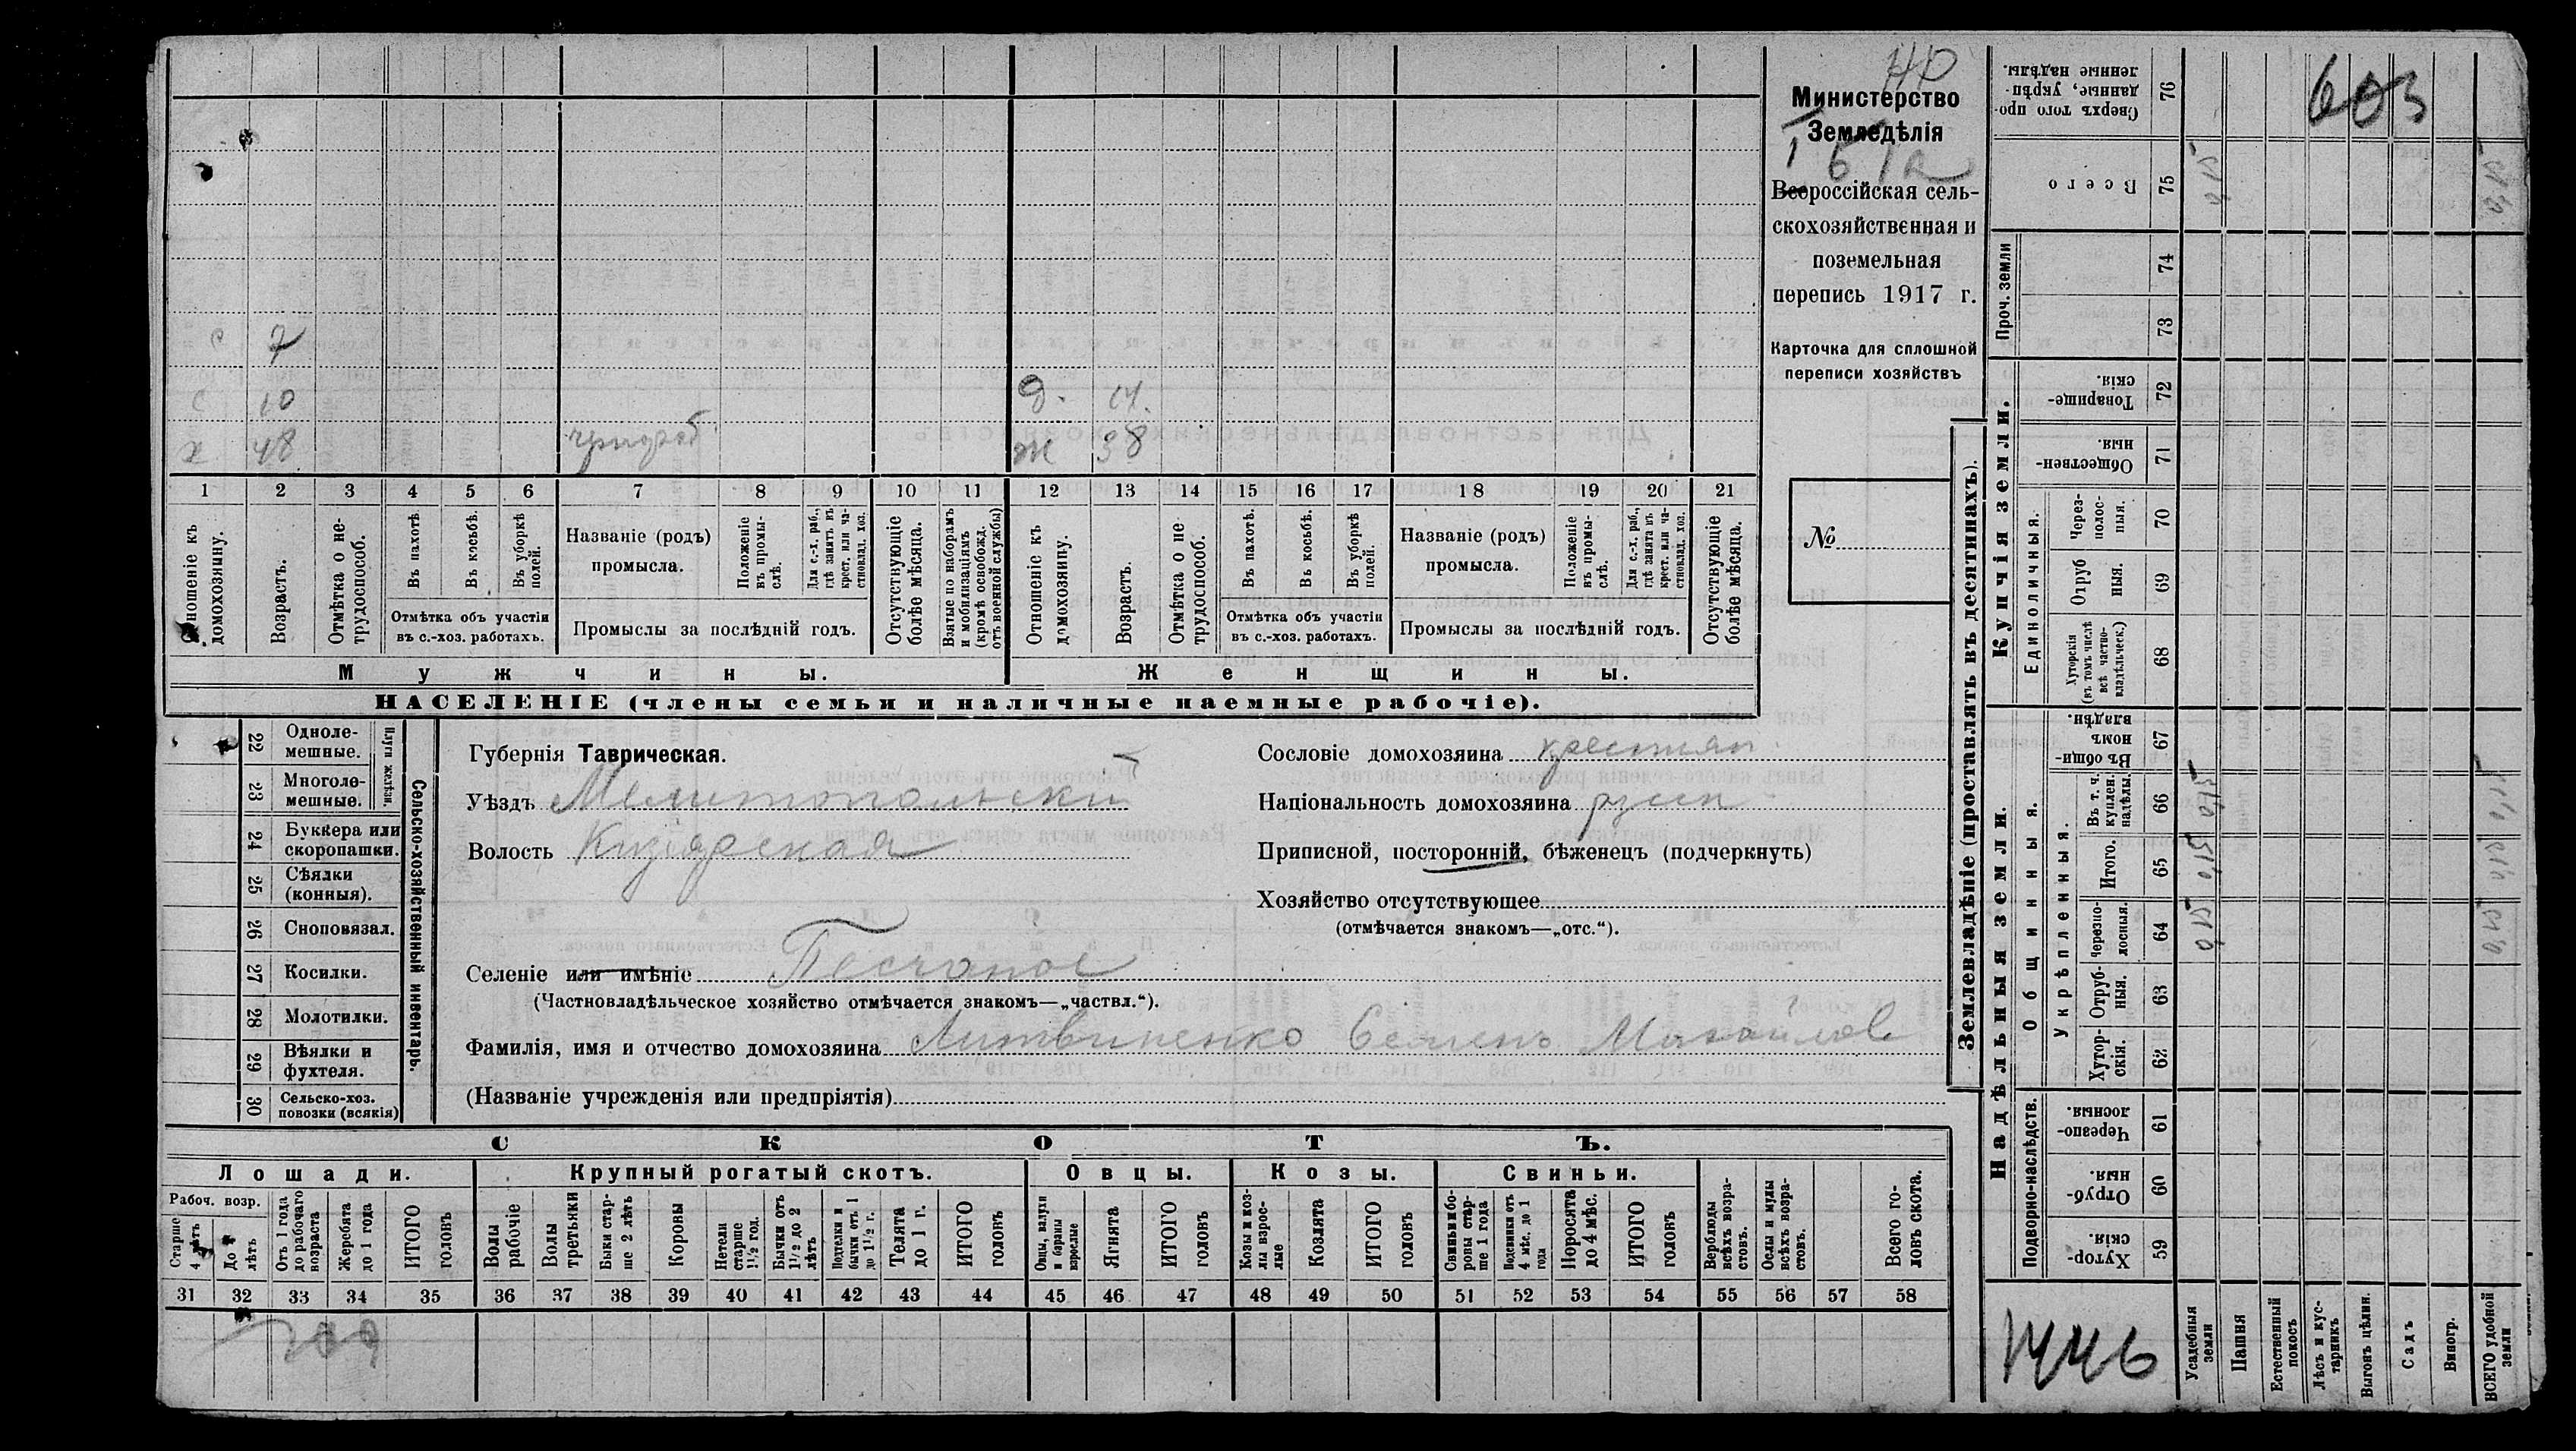 с 7
с 10 д. 14.
х 48 ж 38
1 2 3 4 5 6 7 8 9 10 11 12 13 14 15 16 17 18 19 20 21
Отношеніе къ домохозяину.
Возрастъ.
Отмѣтка о не-трудоспособ.
Въ пахотѣ.
Въ косьбѣ.
Въ уборкѣ полей.
Отмѣтка объ участіи
въ с.-хоз. работахъ.
Названіе (родъ)
промысла.
Положеніе въ промы-слѣ.
Для с.-х. раб., гдѣ занятъ въ крест. или ча-стновлад. хоз.
Промыслы за послѣдній годъ.
Отсутствующіе болѣе мѣсяца.
Взятые по наборамъ и мобилизаціямъ (кромѣ освобожд. отъ военной службы)
Отношеніе къ домохозяину.
Возрастъ.
Отмѣтка о не трудоспособ.
Въ пахотѣ.
Въ косьбѣ.
Въ уборкѣ полей.
Отмѣтка объ участіи
въ с.-хоз. работахъ.
Названіе (родъ)
промысла.
Положеніе въ промы-слѣ.
Для с.-х. раб., гдѣ занята въ крест. или ча-стновлад. хоз.
Промыслы за послѣдній годъ.
Отсутствующіе болѣе мѣсяца.
Мужчины. Женщины.
НАСЕЛЕНІЕ (члены семьи и наличные наемные рабочіе).
Министерство
Земледѣлія
Всероссійская сель-
скохозяйственная и
поземельная
перепись 1917 г.
Карточка для сплошной
переписи хозяйствъ
№
22 Одноле-
мешные.
23 Многоле-
мешные.
Плуги желѣзн.
24 Буккера или
скоропашки.
25 Сѣялки
(конныя).
26 Сноповязал.
27 Косилки.
28 Молотилки.
29 Вѣялки и
фухтеля.
30 Сельско-хоз.
повозки (всякія)
Сельско-хозяйственный инвентарь.
Губернія Таврическая.
Уѣздъ Мелитопольски
Волость Кизіярская
Селеніе или имѣніе Песчаное
(Частновладѣльческое хозяйство отмѣчается знакомъ—„частвл.“).
Фамилія, имя и отчество домохозяина Литвиненко Семенъ Михайлов
(Названіе учрежденія или предпріятія)
Сословіе домохозяина крестьян.
Національность домохозяина русск
Приписной, посторонній, бѣженецъ (подчеркнуть)
Хозяйство отсутствующее
(отмѣчается знакомъ—„отс.“).
СКОТЪ.
Лошади. Крупный рогатый скотъ. Овцы. Козы. Свиньи.
Рабоч. возр.
Старше 4 лѣтъ
До 4 лѣтъ
Отъ 1 года до рабочаго возраста
Жеребята до 1 года
ИТОГО головъ
Волы рабочіе
Волы третьяки
Быки стар-ше 2 лѣтъ
Коровы
Нетели старше 1½ год.
Бычки отъ 1½ до 2 лѣтъ
Подтелки и бычки отъ 1 до 1½ г.
Телята до 1 г.
ИТОГО головъ
Овцы, валухи и бараны взрослые
Ягнята
ИТОГО головъ
Козы и коз-лы взрос-лые
Козлята
ИТОГО головъ
Свиньи и бо-ровы стар-ше 1 года
Подсвинки отъ 4 мѣс. до 1 года
Поросята до 4 мѣс.
ИТОГО головъ
Верблюды всѣхъ возра-стовъ.
Ослы и мулы всѣхъ возра-стовъ.
Всего го-ловъ скота.
31 32 33 34 35 36 37 38 39 40 41 42 43 44 45 46 47 48 49 50 51 52 53 54 55 56 57 58
Землевладѣніе (проставлять въ десятинахъ).
Надѣльныя земли. Купчія земли. Проч. земли
Подворно-наслѣдств.
Общинныя.
Укрѣпленныя.
Единоличныя.
Хутор-скія. 59
Отруб-ныя. 60
Черезпо-лосныя. 61
Хутор-скія. 62
Отруб-ныя. 63
Черезпо-лосныя. 64
Итого. 65
Въ т. ч. куплен. надѣлы. 66
Въ общи нномъ владѣн. 67
Хуторскія (въ томъ числѣ всѣ частно-владѣльческ.) 68
Отруб ныя. 69
Через-полос-ныя. 70
Обществен-ныя. 71
Товарище-скія. 72
73
74
Всего 75
Сверхъ того про-данные, укрѣп-ленные надѣлы. 76
603
1446
Усадебныя земли
Пашня
Естественный покосъ
Лѣсъ и кус-тарникъ
Выгонъ цѣлин.
Садъ
Виногр.
ВСЕГО удобной земли